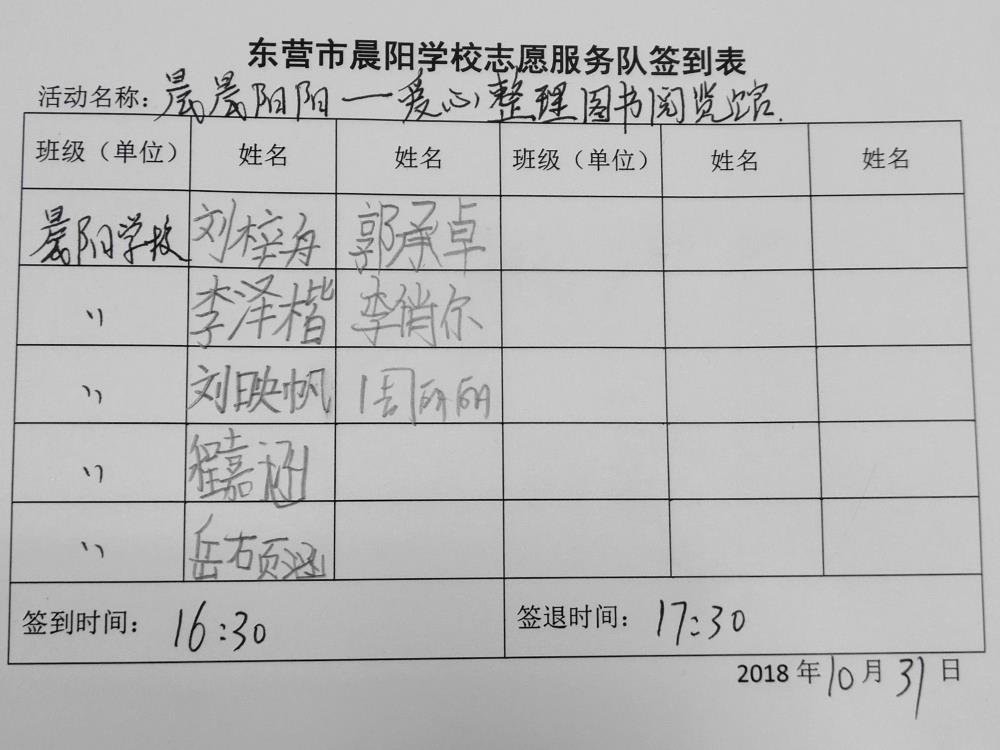 东营市晨阳学校志愿服务队签到表
活动名称：晨晨阳阳一爱心整理图书阅览馆.
班级（单位） 姓名 姓名 班级（单位） 姓名 姓名
晨阳学校 刘梓舟 郭承卓
〃 李泽楷 李俏尔
〃 刘映帆 周丽丽
〃 程嘉涵
〃 岳右
签到时间： 16:30 签退时间： 17:30
2018 年 10 月 31 日